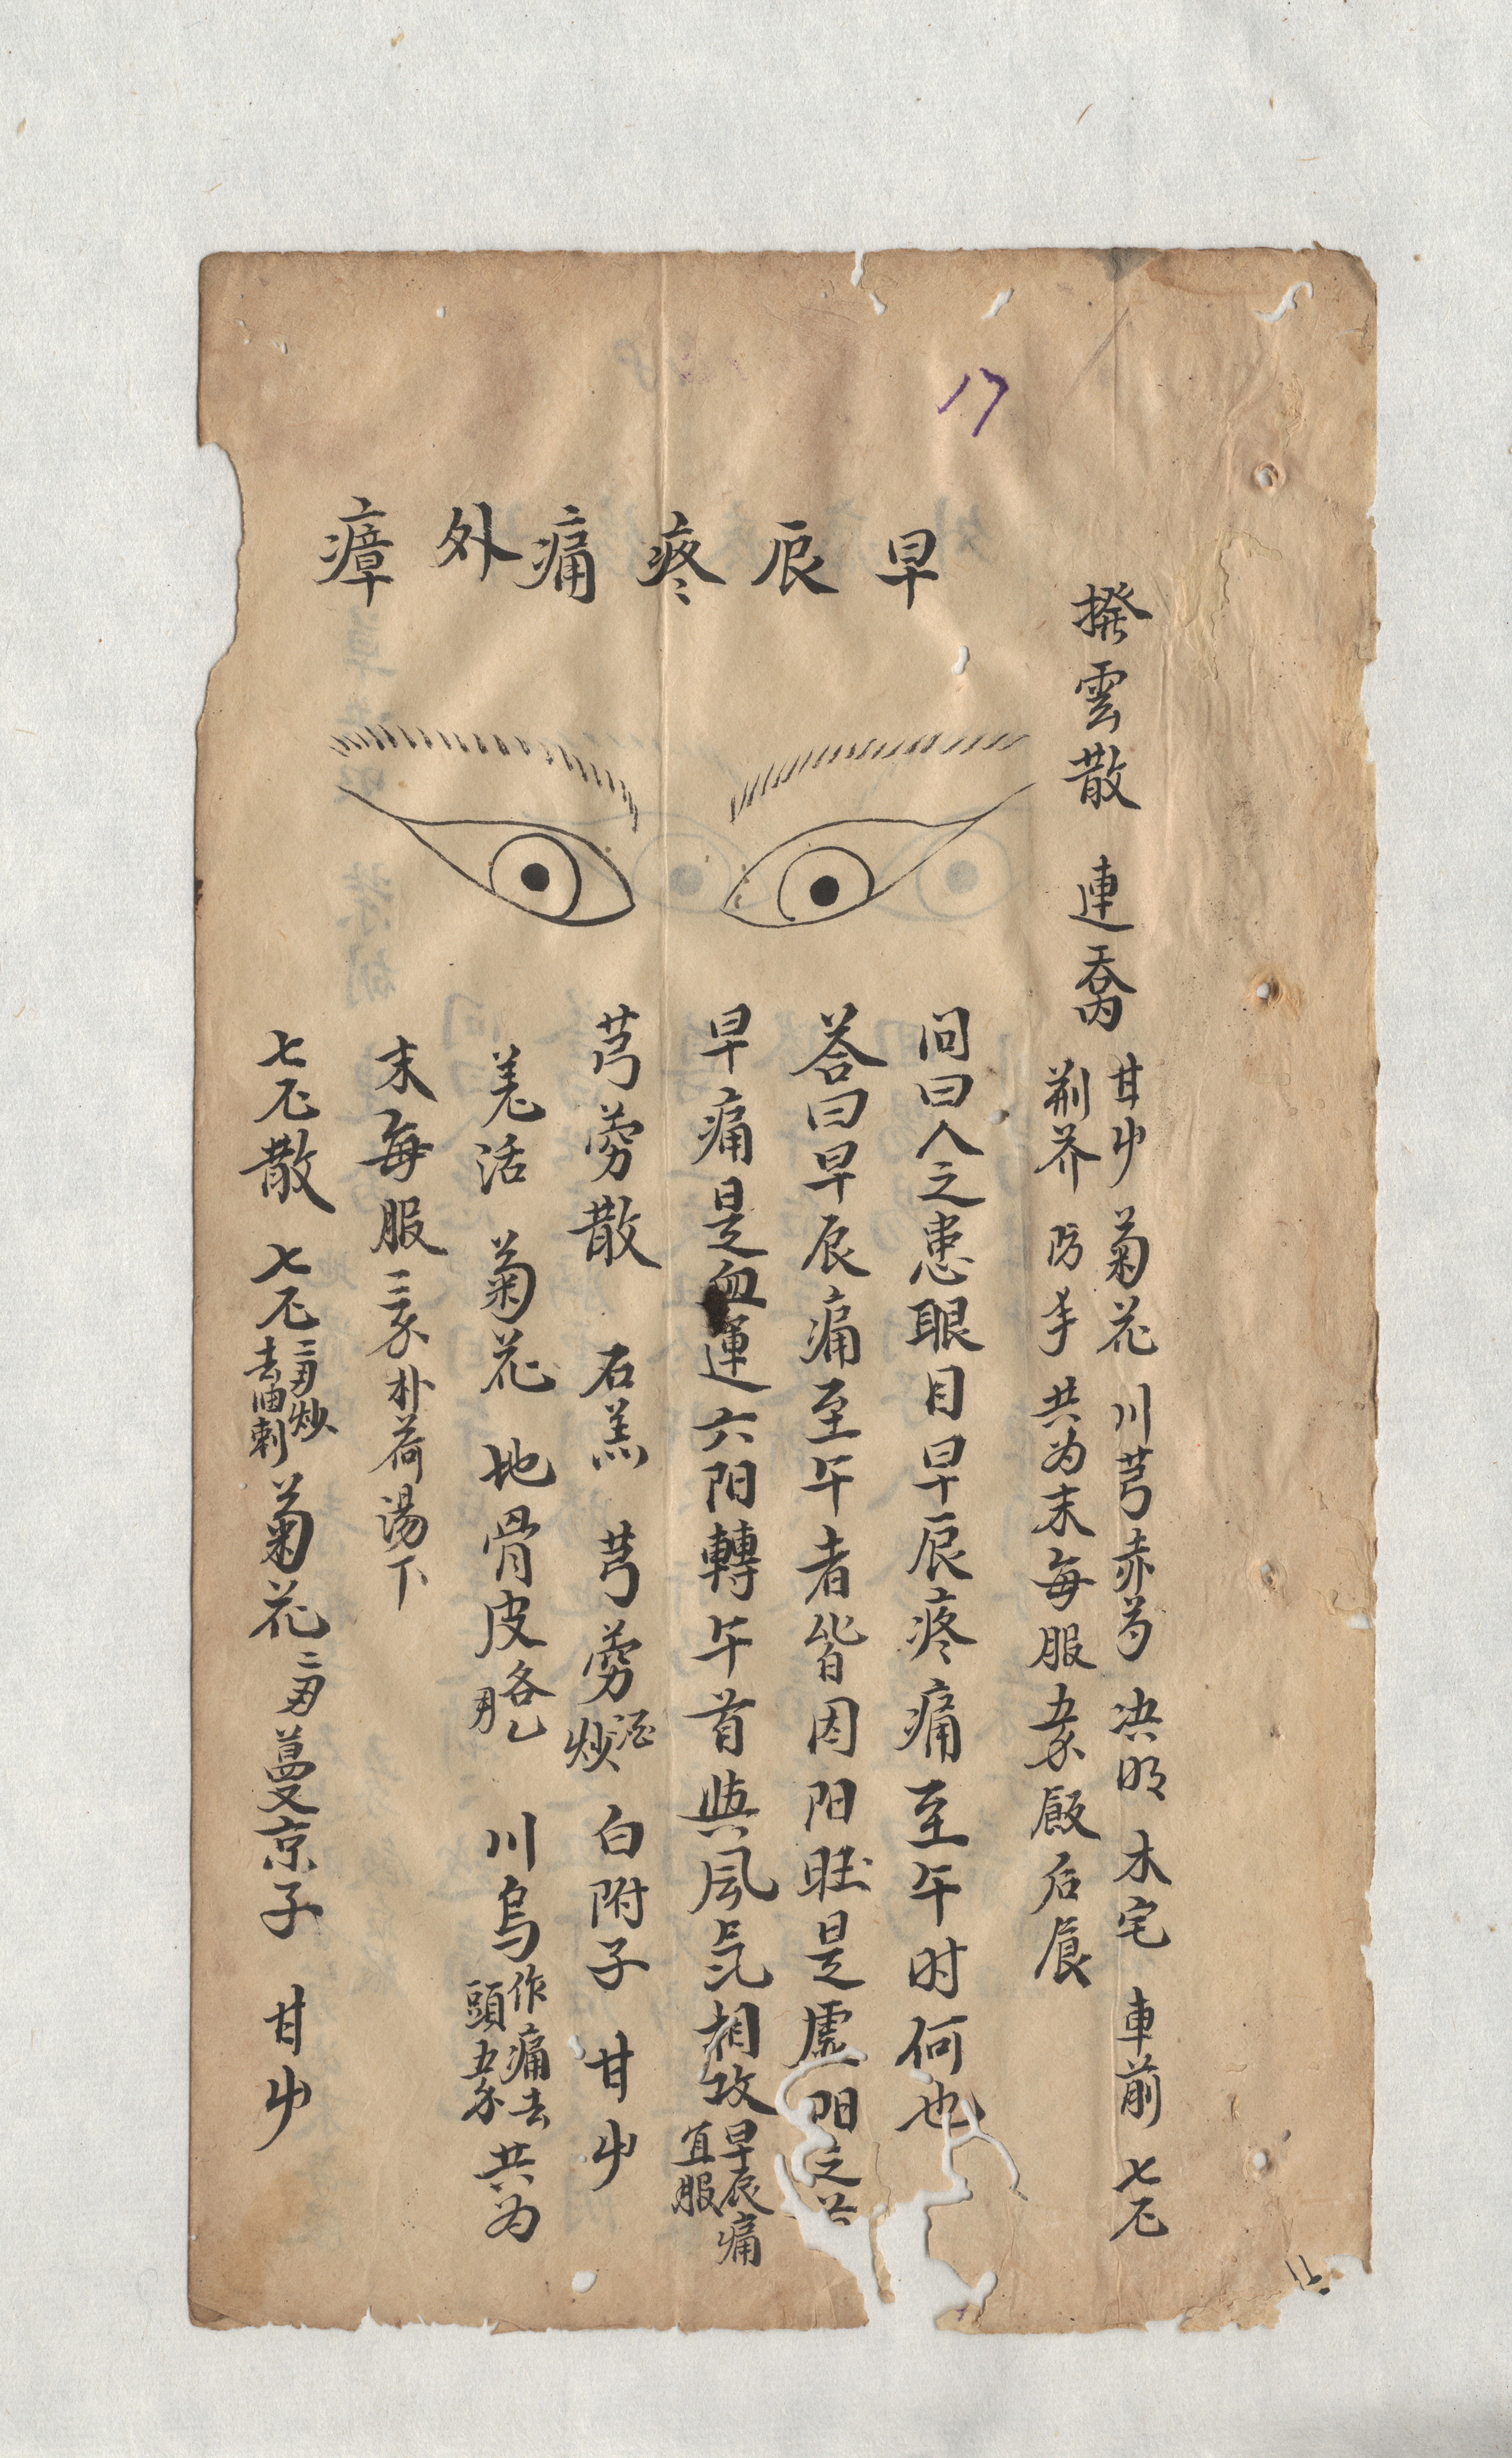 17
撥雲散 連喬 甘艸 菊花 川芎 赤芍 决明 木宅 車前 七厘
荆芥 防丰 共为末每服五分飯后食
早辰疼痛外瘴
问曰人之患眼目早辰疼痛至午时何也
荅曰早辰痛至午者皆因阳旺是虚阳之
早痛是血運六阳轉午首與风氣相攻 早辰痛
宜服
芎藭散 石羔 芎藭 酒炒 白附子 甘艸
羌活 菊花 地骨皮 各 川烏 作痛去
頭 五分 共为
末每服三分朴荷湯下
七厘散 七厘 二両炒
去油刺 菊花 二両 蔓京子 甘艸